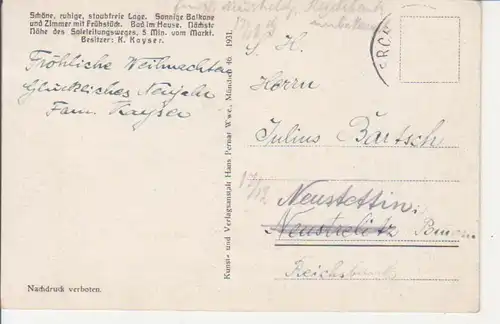 Schöne, ruhige, staubfreie Lage. Sonnige Balkone
und Zimmer mit Frühstück. Bad im Hause. Nächste
Nähe des Soleleitungsweges, 5 Min. vom Markt.
Besitzer: K. Kayser.
Fröhliche Weihnachten
Glückliches Neujahr
Fam. Kayser
Nachdruck verboten.
Kunst- und Verlagsanstalt Hans Pernat Wwe., München 46 1931.
unbekannt
S. H.
Herrn
Julius Bartsch
17/12
Neustettin
Neustrelitz Pomm.
Reichsbank